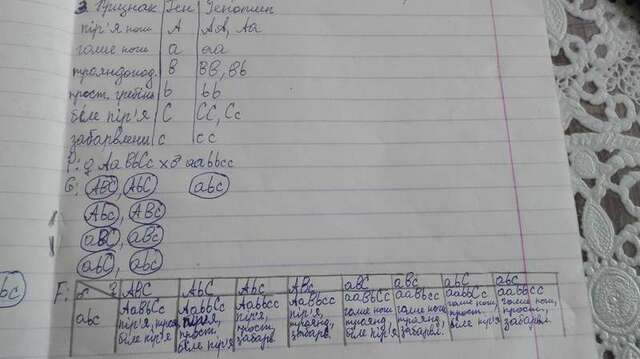 3. Признак Ген Генотип
пір'я ноги A AA, Aa
голые ноги a aa
трояндопод. B BB, Bb
прост. гребінь b bb
біле пір'я C CC, Cc
забарвлени c cc
P: ♀ AaBbCc x ♂ aabbcc
G: ABC, AbC abc
Abc, ABc
aBC, aBc
abC, abc
bc
F: ♂ ♀ ABC AbC Abc ABc aBC aBc abC abc
abc AaBbCc AabbCc Aabbcc AaBbcc aaBbCc aaBbcc aabbCc aabbcc
пір'я, троян пір'я пір'я, пір'я, голые ноги голые ноги голые ноги голые ноги,
біле пір'я прост. прост., троянд., троянд. троянд., прост. прост.,
біле пір'я забарв. забарв. біле пір'я забарвл. біле пір'я забарвл.